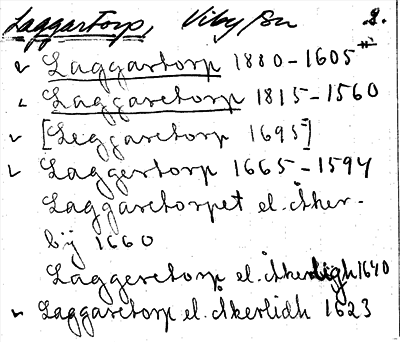 Laggartorp, Viby sn 2.
Laggartorp 1880-1605 *
Laggaretorp 1815-1560
[Leggaretorp 1695]
Laggertorp 1665-1594
Laggaretorpet el. Åker-
by 1660
Laggeretorp el. Åkerligh 1640
Laggaretorp el. Åkerlidh 1623